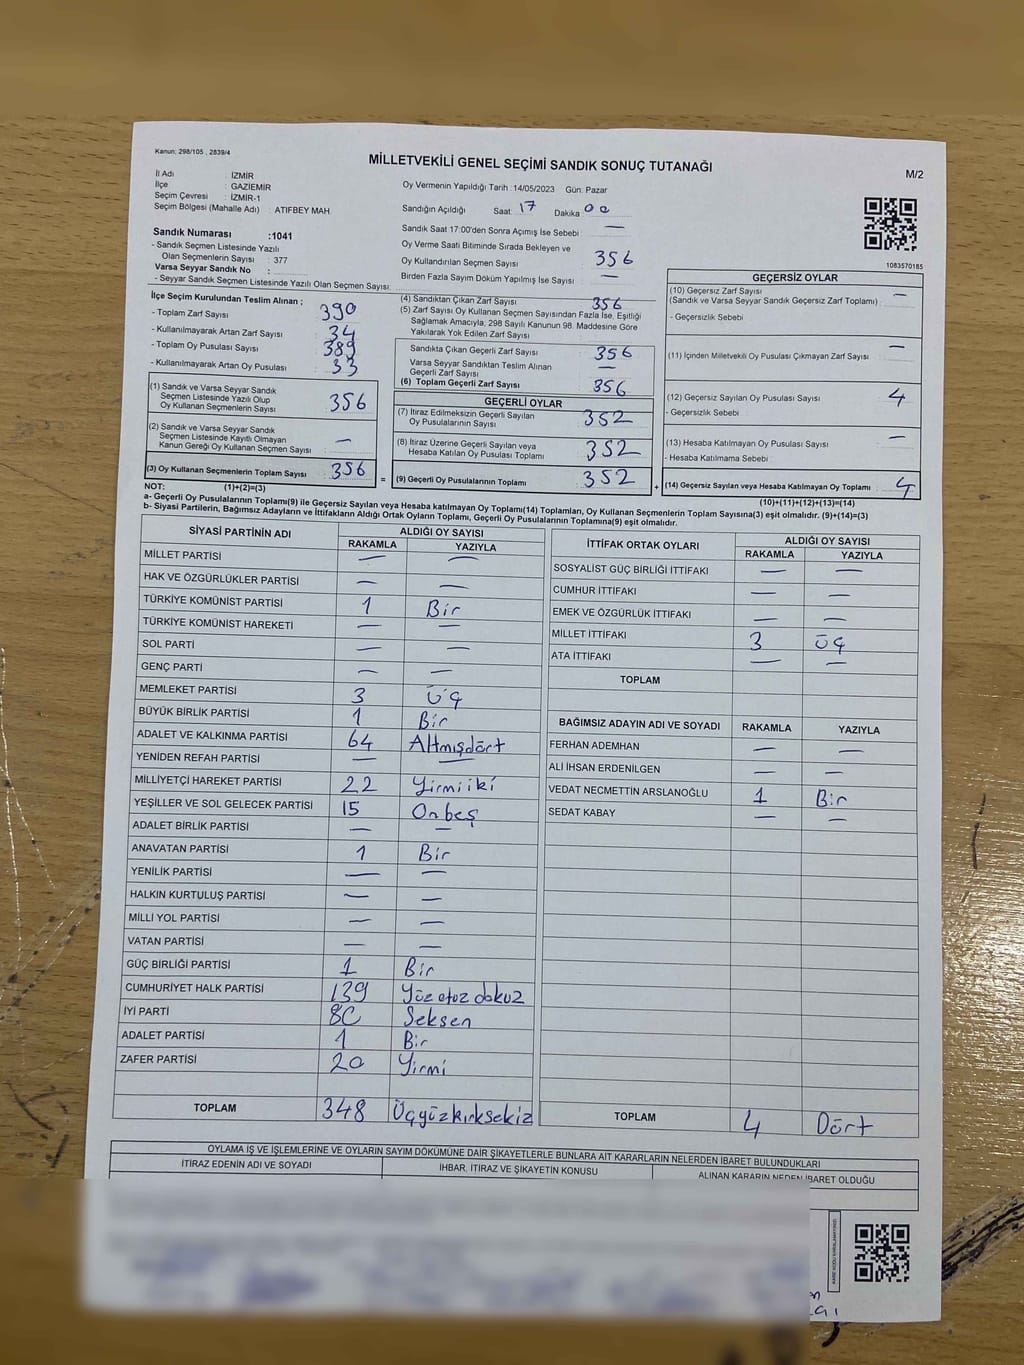 Kanun: 298/105 , 2839/4
MİLLETVEKİLİ GENEL SEÇİMİ SANDIK SONUÇ TUTANAĞI
M/2
İl Adı : İZMİR
İlçe : GAZİEMİR
Seçim Çevresi : İZMİR-1
Seçim Bölgesi (Mahalle Adı) : ATIFBEY MAH.
Oy Vermenin Yapıldığı Tarih : 14/05/2023 Gün: Pazar
Sandığın Açıldığı Saat: 17 Dakika 00
Sandık Numarası :1041
- Sandık Seçmen Listesinde Yazılı
Olan Seçmenlerin Sayısı : 377
Varsa Seyyar Sandık No :
- Seyyar Sandık Seçmen Listesinde Yazılı Olan Seçmen Sayısı:
Sandık Saat 17:00'den Sonra Açımış İse Sebebi : —
Oy Verme Saati Bitiminde Sırada Bekleyen ve
Oy Kullandırılan Seçmen Sayısı : 356
Birden Fazla Sayım Döküm Yapılmış İse Sayısı : —
1083570185
İlçe Seçim Kurulundan Teslim Alınan ;
- Toplam Zarf Sayısı : 390
- Kullanılmayarak Artan Zarf Sayısı : 34
- Toplam Oy Pusulası Sayısı : 389
- Kullanılmayarak Artan Oy Pusulası : 33
(1) Sandık ve Varsa Seyyar Sandık
Seçmen Listesinde Yazılı Olup
Oy Kullanan Seçmenlerin Sayısı : 356
(2) Sandık ve Varsa Seyyar Sandık
Seçmen Listesinde Kayıtlı Olmayan
Kanun Gereği Oy Kullanan Seçmen Sayısı : —
(3) Oy Kullanan Seçmenlerin Toplam Sayısı : 356
(4) Sandıktan Çıkan Zarf Sayısı : 356
(5) Zarf Sayısı Oy Kullanan Seçmen Sayısından Fazla İse, Eşitliği
Sağlamak Amacıyla, 298 Sayılı Kanunun 98. Maddesine Göre
Yakılarak Yok Edilen Zarf Sayısı :
Sandıkta Çıkan Geçerli Zarf Sayısı : 356
Varsa Seyyar Sandıktan Teslim Alınan
Geçerli Zarf Sayısı : —
(6) Toplam Geçerli Zarf Sayısı : 356
GEÇERLİ OYLAR
(7) İtiraz Edilmeksizin Geçerli Sayılan
Oy Pusulalarının Sayısı : 352
(8) İtiraz Üzerine Geçerli Sayılan veya
Hesaba Katılan Oy Pusulası Toplamı : 352
= (9) Geçerli Oy Pusulalarının Toplamı : 352
GEÇERSİZ OYLAR
(10) Geçersiz Zarf Sayısı —
(Sandık ve Varsa Seyyar Sandık Geçersiz Zarf Toplamı) :
- Geçersizlik Sebebi :
(11) İçinden Milletvekili Oy Pusulası Çıkmayan Zarf Sayısı : —
(12) Geçersiz Sayılan Oy Pusulası Sayısı : 4
- Geçersizlik Sebebi :
(13) Hesaba Katılmayan Oy Pusulası Sayısı : —
- Hesaba Katılmama Sebebi :
+ (14) Geçersiz Sayılan veya Hesaba Katılmayan Oy Toplamı : 4
NOT: (1)+(2)=(3)
(10)+(11)+(12)+(13)=(14)
a- Geçerli Oy Pusulalarının Toplamı(9) ile Geçersiz Sayılan veya Hesaba katılmayan Oy Toplamı(14) Toplamları, Oy Kullanan Seçmenlerin Toplam Sayısına(3) eşit olmalıdır. (9)+(14)=(3)
b- Siyasi Partilerin, Bağımsız Adayların ve İttifakların Aldığı Ortak Oyların Toplamı, Geçerli Oy Pusulalarının Toplamına(9) eşit olmalıdır.
SİYASİ PARTİNİN ADI ALDIĞI OY SAYISI
RAKAMLA YAZIYLA
MİLLET PARTİSİ — —
HAK VE ÖZGÜRLÜKLER PARTİSİ — —
TÜRKİYE KOMÜNİST PARTİSİ 1 Bir
TÜRKİYE KOMÜNİST HAREKETİ — —
SOL PARTİ — —
GENÇ PARTİ — —
MEMLEKET PARTİSİ 3 Üç
BÜYÜK BİRLİK PARTİSİ 1 Bir
ADALET VE KALKINMA PARTİSİ 64 Altmışdört
YENİDEN REFAH PARTİSİ — —
MİLLİYETÇİ HAREKET PARTİSİ 22 Yirmiiki
YEŞİLLER VE SOL GELECEK PARTİSİ 15 Onbeş
ADALET BİRLİK PARTİSİ — —
ANAVATAN PARTİSİ 1 Bir
YENİLİK PARTİSİ — —
HALKIN KURTULUŞ PARTİSİ — —
MİLLİ YOL PARTİSİ — —
VATAN PARTİSİ — —
GÜÇ BİRLİĞİ PARTİSİ 1 Bir
CUMHURİYET HALK PARTİSİ 139 Yüz otuz dokuz
İYİ PARTİ 80 Seksen
ADALET PARTİSİ 1 Bir
ZAFER PARTİSİ 20 Yirmi
TOPLAM 348 Üçyüzkırksekiz
İTTİFAK ORTAK OYLARI ALDIĞI OY SAYISI
RAKAMLA YAZIYLA
SOSYALİST GÜÇ BİRLİĞİ İTTİFAKI — —
CUMHUR İTTİFAKI — —
EMEK VE ÖZGÜRLÜK İTTİFAKI — —
MİLLET İTTİFAKI 3 Üç
ATA İTTİFAKI — —
TOPLAM
BAĞIMSIZ ADAYIN ADI VE SOYADI RAKAMLA YAZIYLA
FERHAN ADEMHAN — —
ALİ İHSAN ERDENİLGEN — —
VEDAT NECMETTİN ARSLANOĞLU 1 Bir
SEDAT KABAY — —
TOPLAM 4 Dört
OYLAMA İŞ VE İŞLEMLERİNE VE OYLARIN SAYIM DÖKÜMÜNE DAİR ŞİKAYETLERLE BUNLARA AİT KARARLARIN NELERDEN İBARET BULUNDUKLARI
İTİRAZ EDENİN ADI VE SOYADI İHBAR, İTİRAZ VE ŞİKAYETİN KONUSU ALINAN KARARIN NEDEN İBARET OLDUĞU